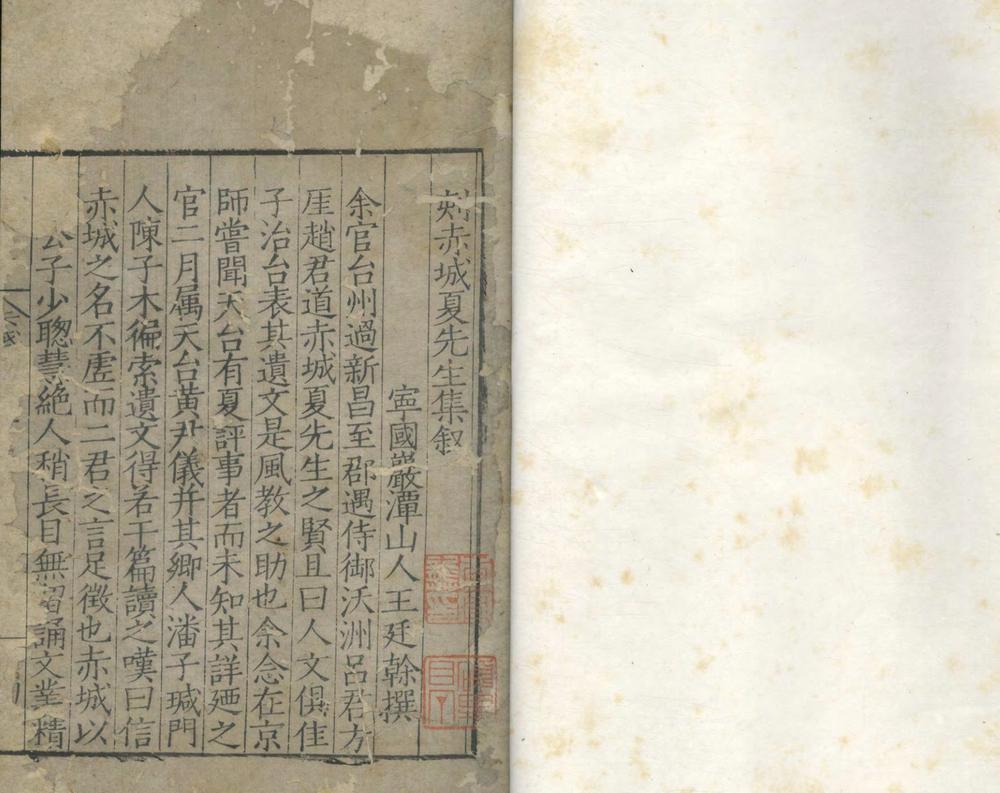 刻赤城夏先生集叙
寧國巖潭山人王廷榦撰
余官台州過新昌至郡遇侍御沃洲呂君方
厓趙君道赤城夏先生之賢且曰人文俱佳
子治台表其遺文是風教之助也余念在京
師嘗聞天台有夏評事者而未知其詳廼之
官二月属天台黄尹儀并其鄉人潘子瑊門
人陳子木徧索遺文得若干篇讀之嘆曰信
赤城之名不虗而二君之言足徵也赤城以
公子少聰慧絶人稍長目無留誦文業精